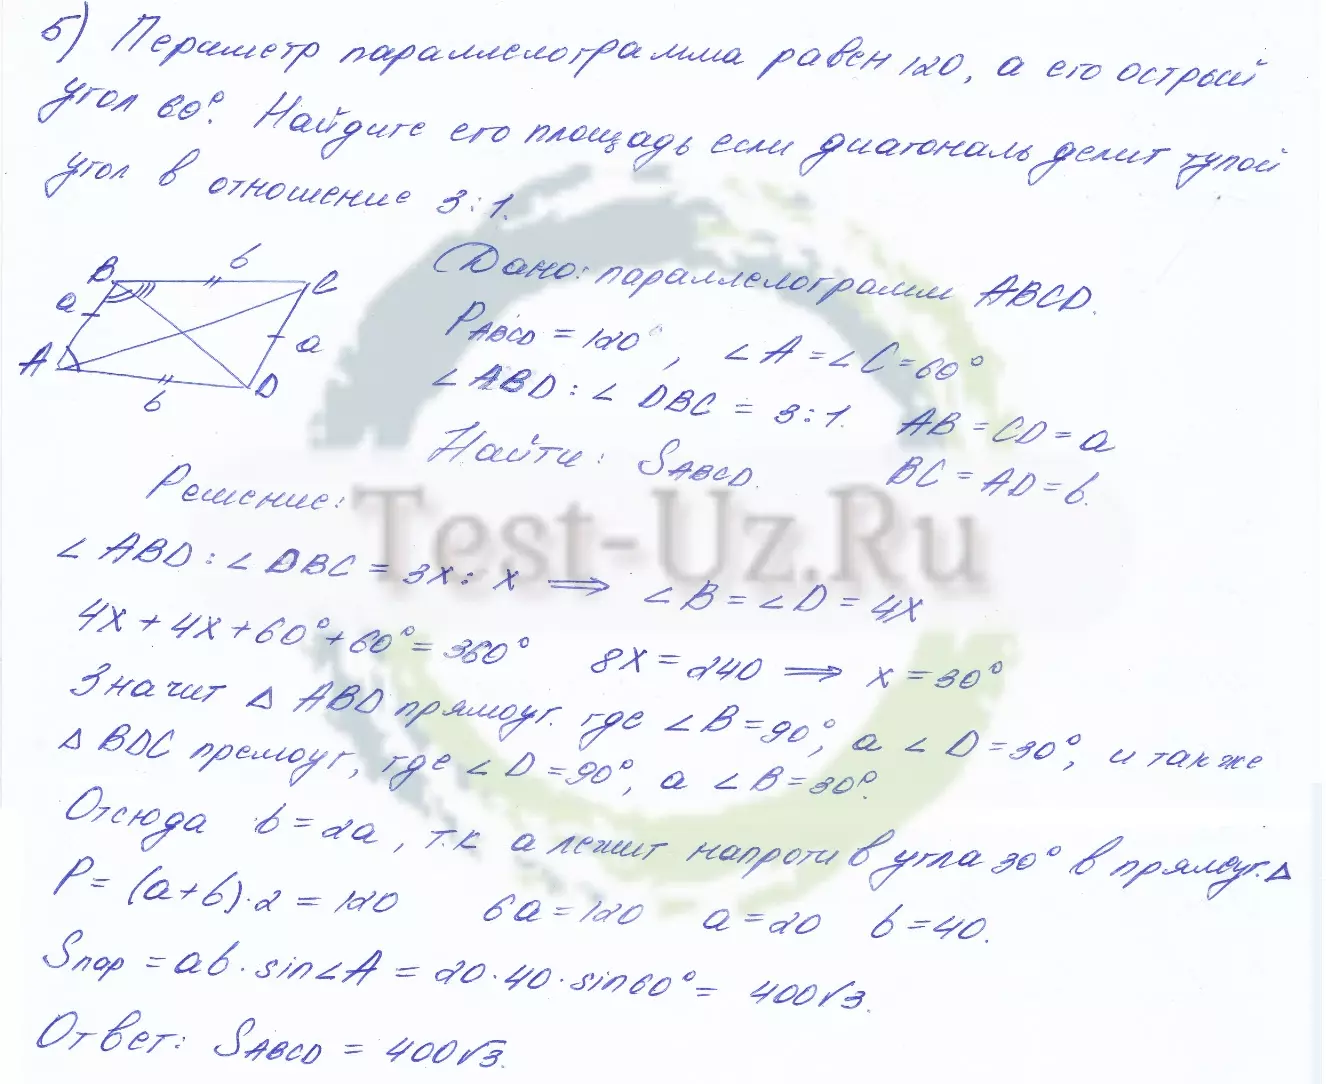 5) Периметр параллелограмма равен 120, а его острый
угол 60°. Найдите его площадь если диагональ делит тупой
угол в отношение 3:1.
B b C
a
A a
b D
Дано: параллелограмм ABCD.
P ABCD = 120°, ∠A = ∠C = 60°
∠ABD : ∠DBC = 3:1. AB = CD = a
Найти: S ABCD. BC = AD = b.
Решение:
Test-Uz.Ru
∠ABD : ∠DBC = 3x : x ⟹ ∠B = ∠D = 4x
4x + 4x + 60° + 60° = 360° 8x = 240 ⟹ x = 30°
Значит △ ABD прямоуг. где ∠B = 90°, а ∠D = 30°, и также
△ BDC премоуг, где ∠D = 90°, а ∠B = 30°.
Отсюда b = 2a, т.к a лежит напротив угла 30° в прямоуг. △
P = (a + b)·2 = 120 6a = 120 a = 20 b = 40.
Sпар = ab · sin∠A = 20·40·sin60° = 400√3.
Ответ: S ABCD = 400√3.